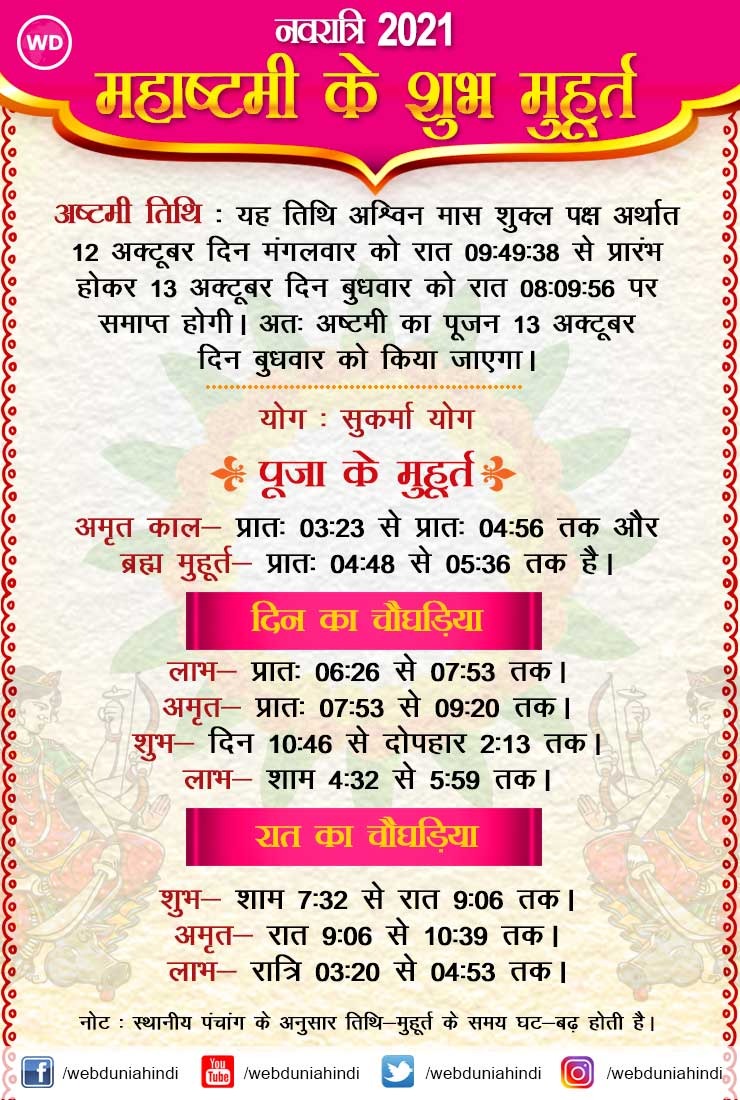 WD
नवरात्रि 2021
महाष्टमी के शुभ मुहूर्त
अष्टमी तिथि : यह तिथि अश्विन मास शुक्ल पक्ष अर्थात
12 अक्टूबर दिन मंगलवार को रात 09:49:38 से प्रारंभ
होकर 13 अक्टूबर दिन बुधवार को रात 08:09:56 पर
समाप्त होगी। अतः अष्टमी का पूजन 13 अक्टूबर
दिन बुधवार को किया जाएगा।
योग : सुकर्मा योग
पूजा के मुहूर्त
अमृत काल– प्रातः 03:23 से प्रातः 04:56 तक और
ब्रह्म मुहूर्त– प्रातः 04:48 से 05:36 तक है।
दिन का चौघड़िया
लाभ– प्रातः 06:26 से 07:53 तक।
अमृत– प्रातः 07:53 से 09:20 तक।
शुभ– दिन 10:46 से दोपहार 2:13 तक।
लाभ– शाम 4:32 से 5:59 तक।
रात का चौघड़िया
शुभ– शाम 7:32 से रात 9:06 तक।
अमृत– रात 9:06 से 10:39 तक।
लाभ– रात्रि 03:20 से 04:53 तक।
नोट : स्थानीय पंचांग के अनुसार तिथि–मुहूर्त के समय घट–बढ़ होती है।
f /webduniahindi You Tube /webduniahindi /webduniahindi /webduniahindi